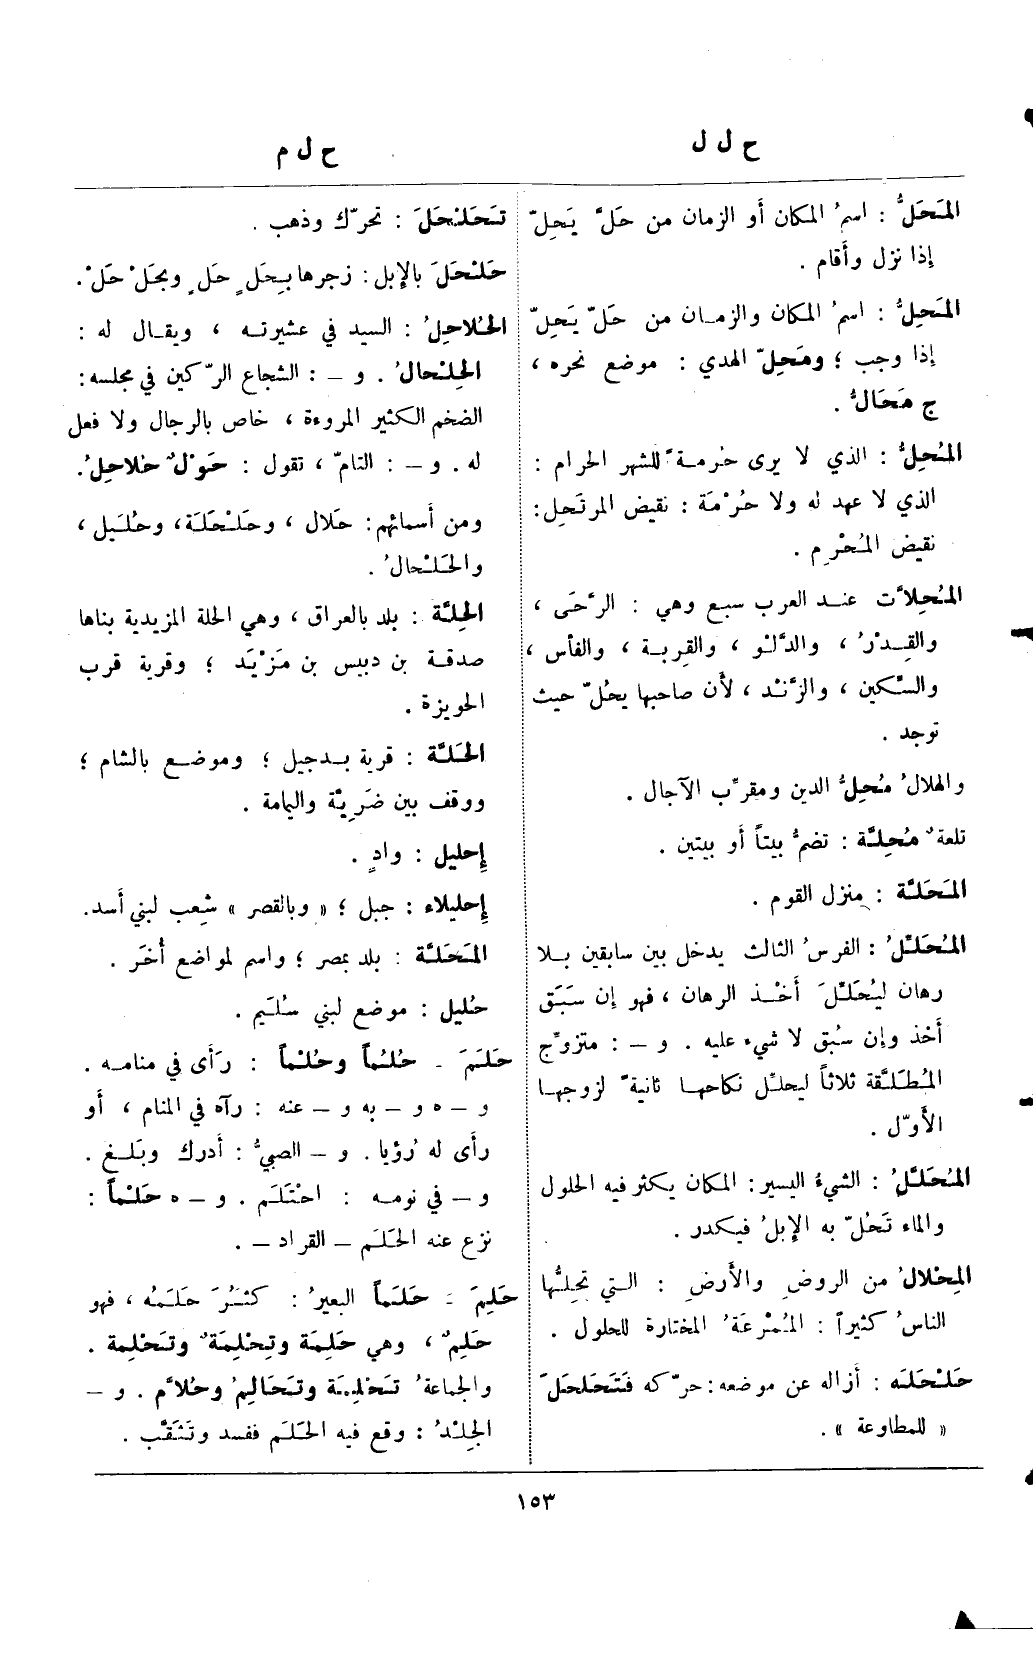 ح ل ل
المَحَلُّ : اسمُ المكان أو الزمان من حَلَّ يَحِلّ
إذا نزل وأَقام .
المَحِلُّ : اسمُ المكان والزمـان من حَلّ يَحِلّ
إذا وجب ؛ ومَحِلّ الهدي : موضع نحره ،
ج مَحَالُّ .
المُحِلُّ : الذي لا يرى حُرمـةً للشهر الحرام :
الذي لا عهد له ولا حُرْمَة : نقيض المرتَحِل :
نقيض المُحْرِم .
المُحِلاَّت عنـد العرب سبع وهي : الرَّحَى ،
والقِـدْرُ ، والدَّلْـو ، والقِربـة ، والفأس ،
والسِّكين ، والزَّنْد ، لأَن صاحبها يحُلّ حيث
توجد .
والهلالُ مُحِلُّ الدين ومقرِّب الآجال .
تلعةٌ مُحِلَّة : تضمُّ بيتاً أو بيتين .
المَحَلَّة : منزل القوم .
المُحَلِّلُ : الفرسُ الثالث يدخل بين سابقين بـلا
رهان ليُحَلِّلَ أَخْـذ الرهان ، فهو إن سَبَق
أَخذ وإن سُبق لا شيء عليه . و – : متزوِّج
المُطَلَّقة ثلاثاً ليحلِّل نكاحهـا ثانيةً لزوجهـا
الأَوّل .
المُحَلَّلُ : الشيءُ اليسير : المكان يكثر فيه الحلول
والماء تَحُلّ به الإبلُ فيكدر .
المِحْلالُ من الروض والأَرضِ : الـتي تحِلُّها
الناسُ كثيراً : المُمْرِعَةُ المختارة للحلول .
حَلْحَلَه : أزاله عن موضعه : حرّكه فَتَحَلحَلَ
« للمطاوعة » .
ح ل م
تَحَلْحَلَ : تحرّك وذهب .
حَلْحَلَ بالإبل : زجرها بِحَلٍ حَلٍ وبحَلْ حَلْ .
الحُلاحِلُ : السيد في عشيرتـه ، ويقـال له :
الحِلْحالُ . و – : الشجاع الرّكين في مجلسه :
الضخم الكثير المروءة ، خاص بالرجال ولا فعل
له . و – : التامّ ، تقول : حَوْلٌ حُلاحِلُ .
ومن أَسمائهم : حَلال ، وحَلْحَلَة ، وحُلَيل ،
والحَلْحالُ .
الحِلَّة : بلد بالعراق ، وهي الحلة المزيدية بناها
صدقـة بن دبيس بن مَزْيَد ؛ وقرية قرب
الحويزة .
الحَلَّة : قرية بـدجيل ؛ وموضـع بالشام ؛
ووقف بين ضَرِيَّة واليمامة .
إحليل : وادٍ .
إحليلاء : جبل ؛ « وبالقصر » شِعب لبني أَسد .
المَحَلَّة : بلد بمصر ؛ واسم لمواضع أُخَر .
حُليل : موضع لبني سُلَيم .
حَلَمَ - حُلُماً وحُلْماً : رَأَى في منامـه .
و – ه و – به و – عنه : رآه في المنام ، أو
رأى له رُؤيا . و – الصبيُّ : أدرك وبَلَـغ .
و – في نومـه : احْتَلَـم . و – ه حَلْمـاً :
نزع عنه الحَلَـم – القراد – .
حَلِمَ - حَلَمـاً البعيرُ : كَثُرَ حَلَمُه ، فهو
حَلِمٌ ، وهي حَلِمَة وتِحْلِمَةٌ وتَحْلِمة .
والجماعةُ تَحْلِمَة وتَحَالِمُ وحُلاَّم . و –
الجِلْدُ : وقع فيه الحَلَـم ففسد وتَثَقَّب .
١٥٣